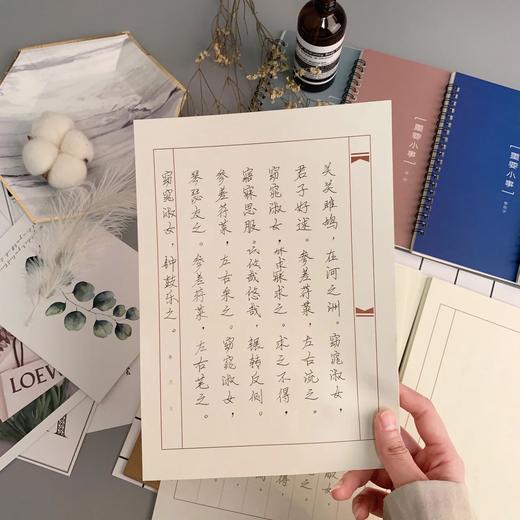 关关雎鸠，在河之洲。窈窕淑女，
君子好逑。参差荇菜，左右流之。
窈窕淑女，寤寐求之。求之不得
寤寐思服。悠哉悠哉，辗转反侧。
参差荇菜，左右采之。窈窕淑女，
琴瑟友之。参差荇菜，左右芼之。
窈窕淑女，钟鼓乐之。
【重要小事】
【重要小事】
LOEW